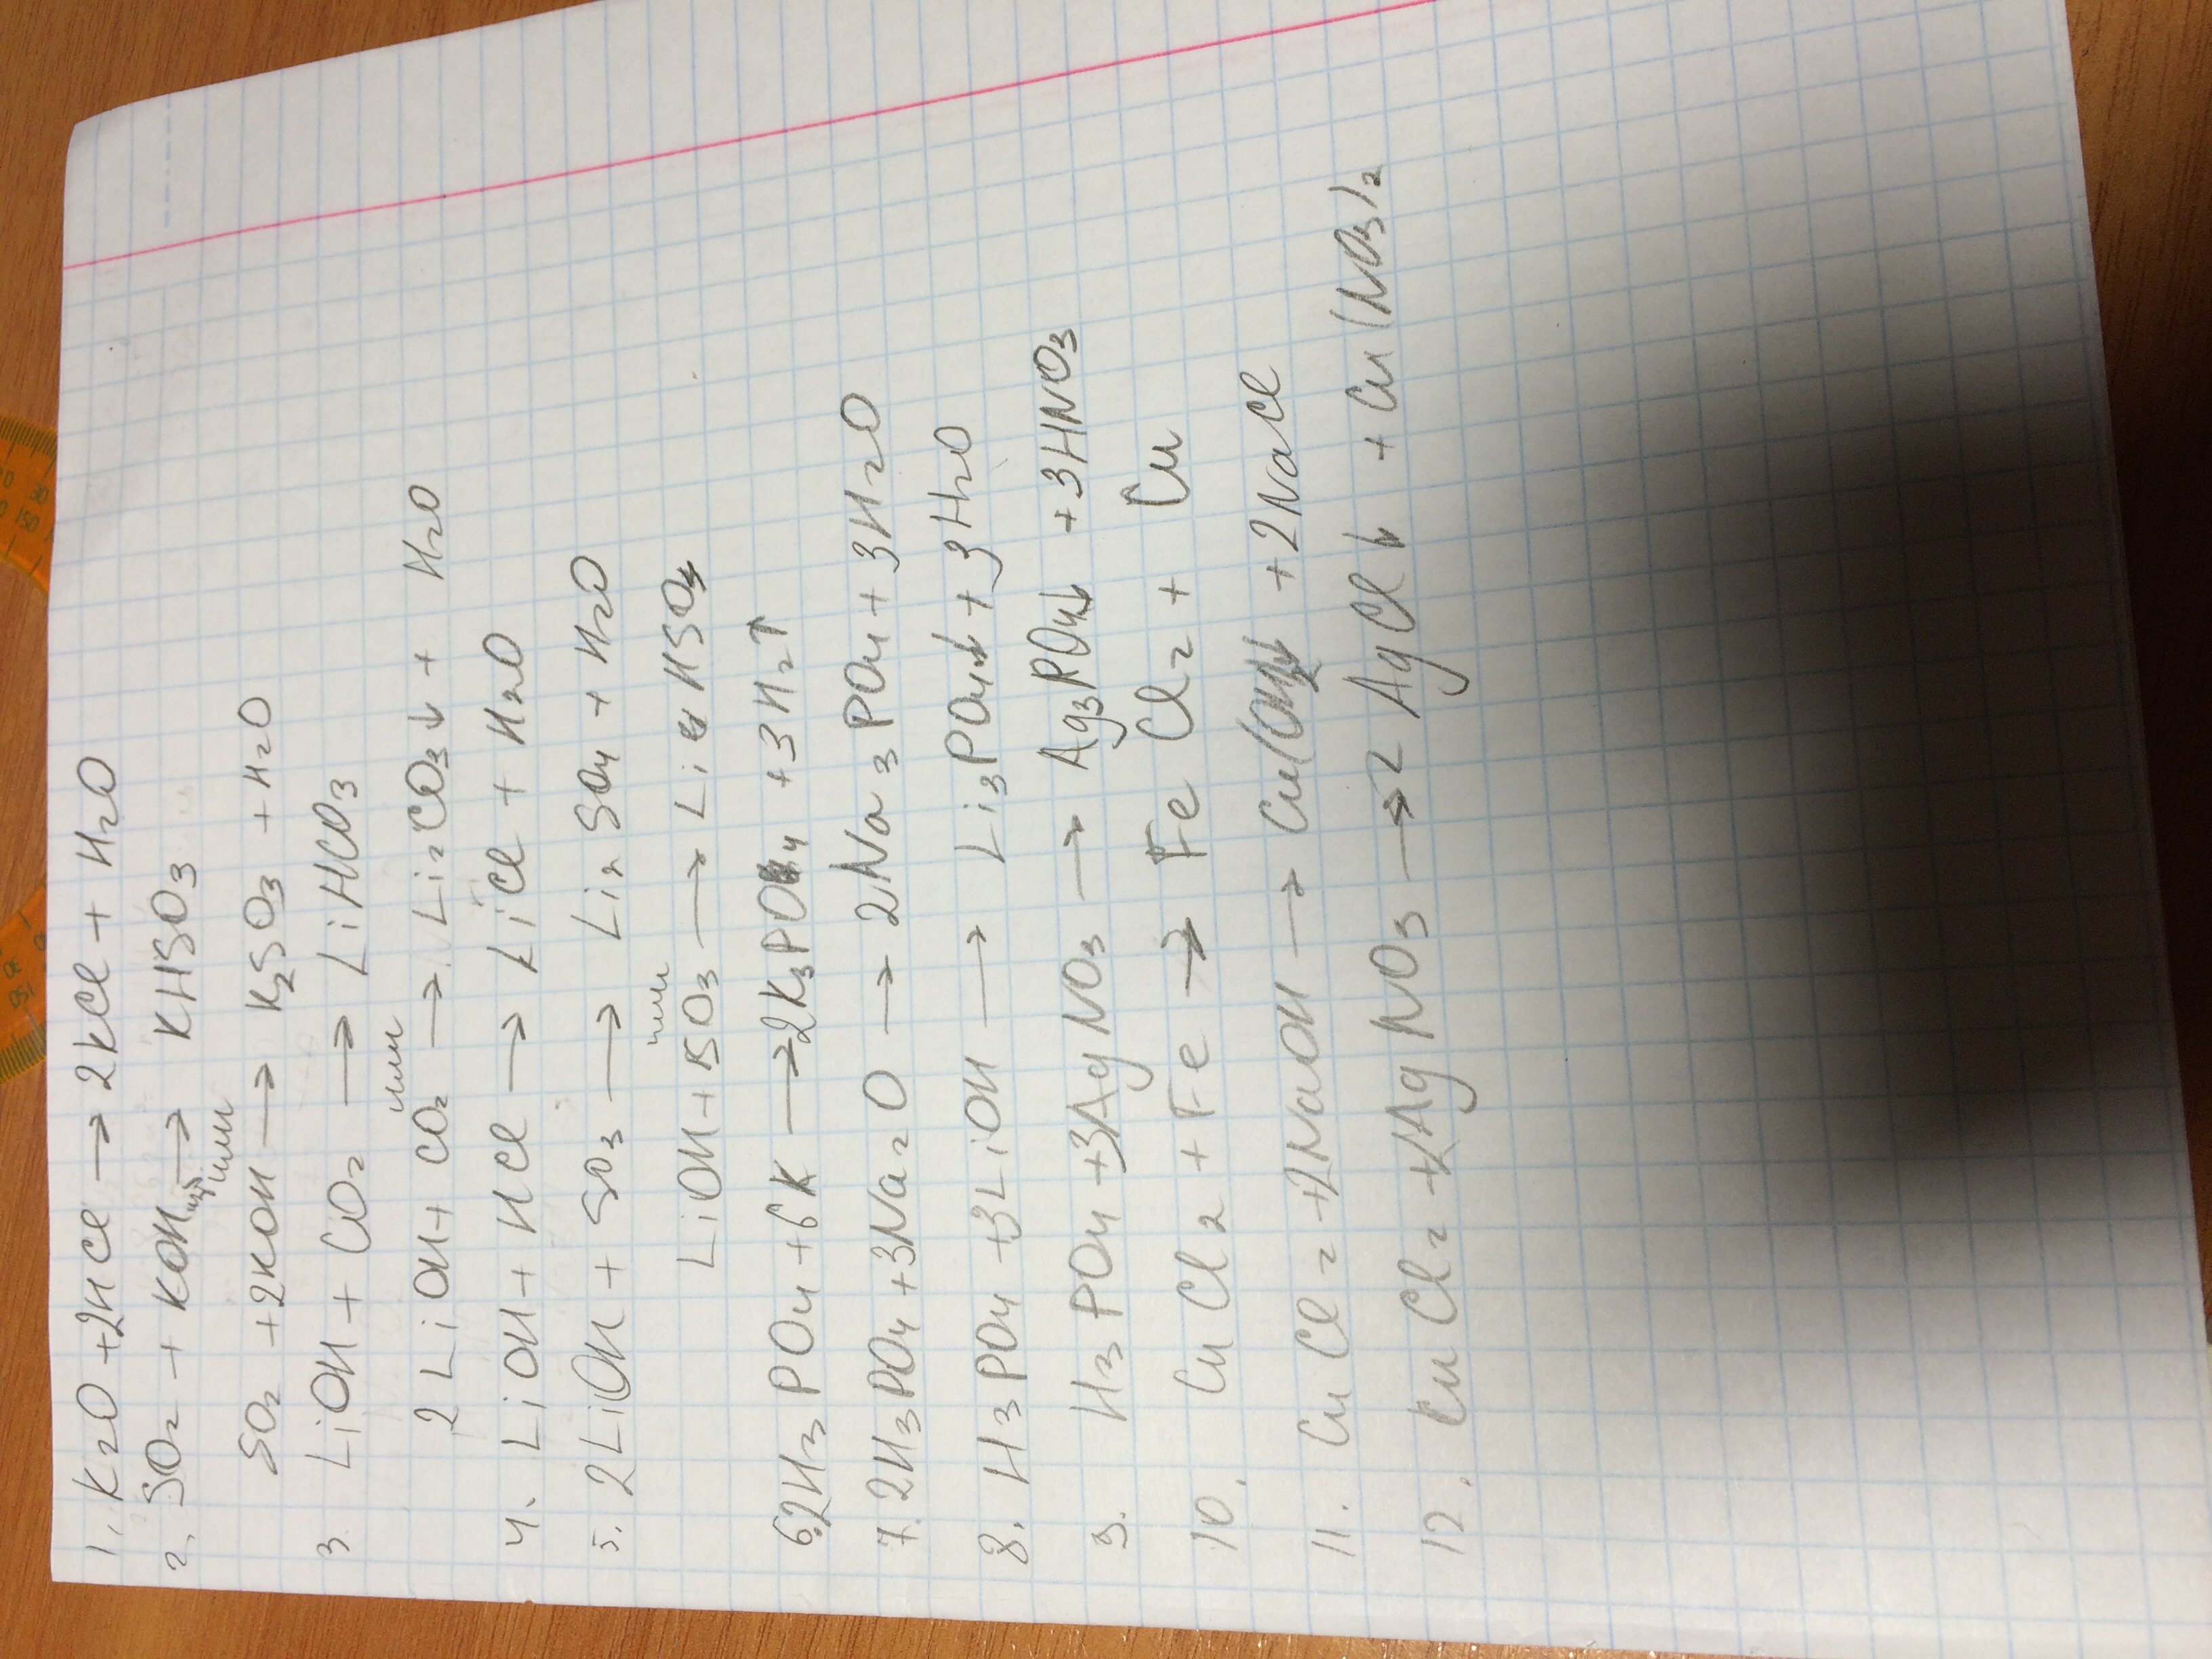 1. K₂O + 2HCl → 2KCl + H₂O
2. SO₂ + KOH → KHSO₃
или
SO₂ + 2KOH → K₂SO₃ + H₂O
3. LiOH + CO₂ → LiHCO₃
или
2LiOH + CO₂ → Li₂CO₃↓ + H₂O
4. LiOH + HCl → LiCl + H₂O
5. 2LiOH + SO₃ → Li₂SO₄ + H₂O
или
LiOH + SO₃ → LiHSO₄
6. 2H₃PO₄ + 6K → 2K₃PO₄ + 3H₂↑
7. 2H₃PO₄ + 3Na₂O → 2Na₃PO₄ + 3H₂O
8. H₃PO₄ + 3LiOH → Li₃PO₄↓ + 3H₂O
9. H₃PO₄ + 3AgNO₃ → Ag₃PO₄↓ + 3HNO₃
10. CuCl₂ + Fe → FeCl₂ + Cu
11. CuCl₂ + 2NaOH → Cu(OH)₂↓ + 2NaCl
12. CuCl₂ + 2AgNO₃ → 2AgCl↓ + Cu(NO₃)₂